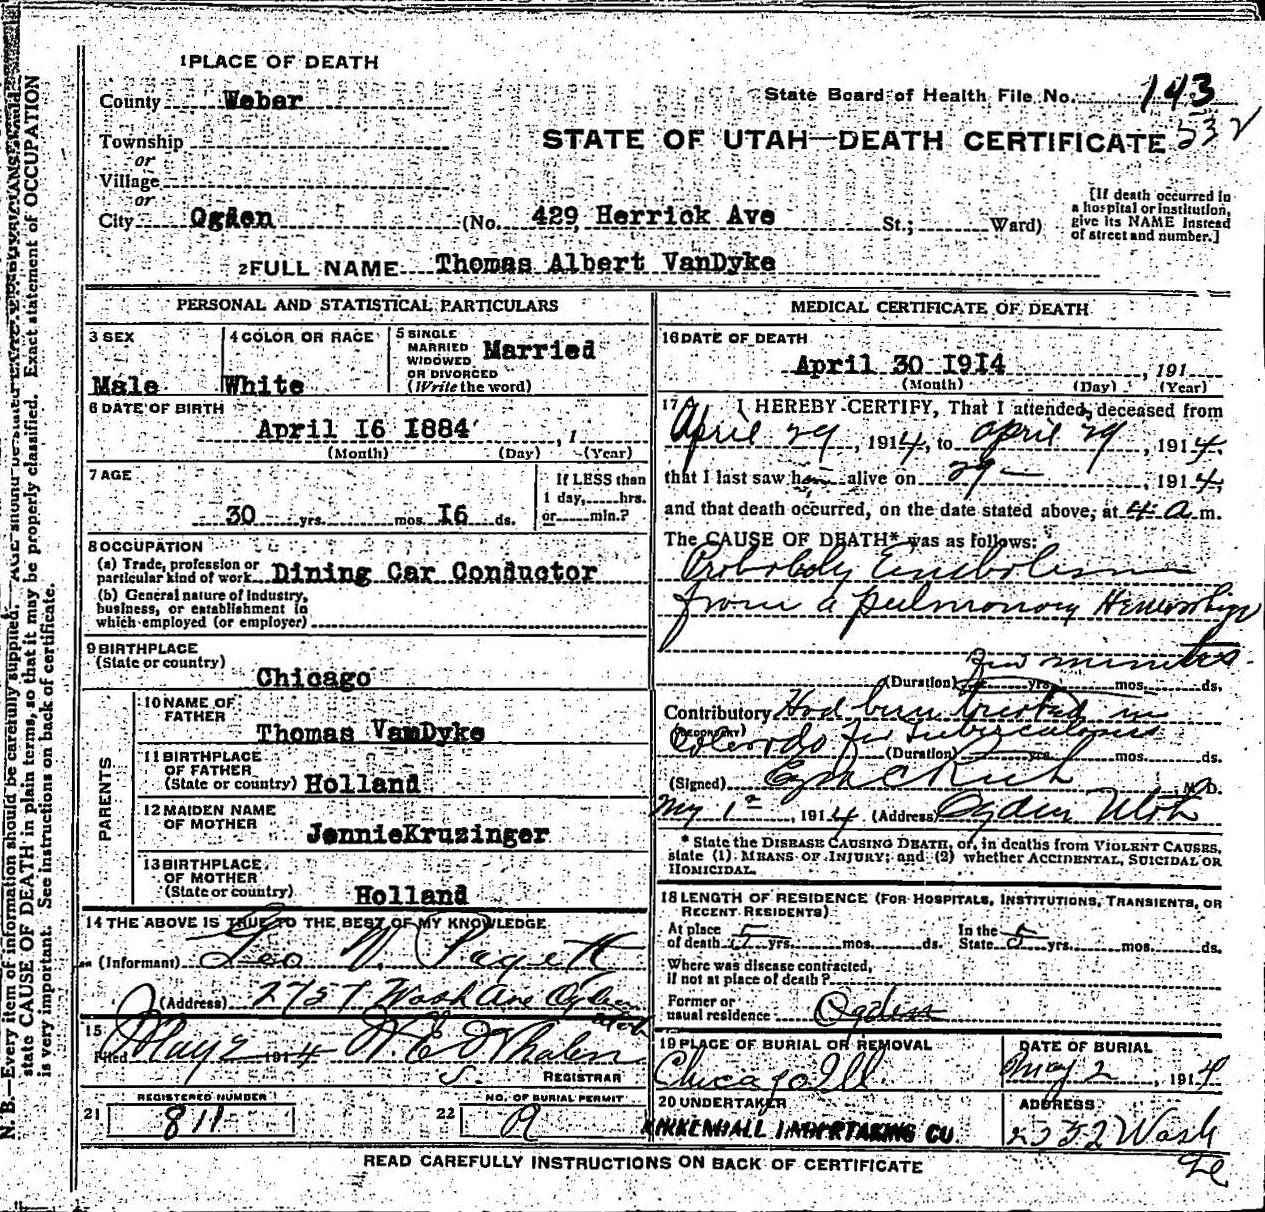 1 PLACE OF DEATH
County Weber
State Board of Health File No. 143
Township
STATE OF UTAH—DEATH CERTIFICATE 532
or
Village
or
City Ogden (No. 429 Herrick Ave St.; Ward)
[If death occurred in
a hospital or institution,
give its NAME instead
of street and number.]
2 FULL NAME Thomas Albert VanDyke
PERSONAL AND STATISTICAL PARTICULARS
3 SEX
Male
4 COLOR OR RACE
White
5 SINGLE
MARRIED
WIDOWED
OR DIVORCED
(Write the word)
Married
6 DATE OF BIRTH
April I6 I884 , 1
(Month) (Day) (Year)
7 AGE
30 yrs. mos. I6 ds.
If LESS than
1 day, hrs.
or min.?
8 OCCUPATION
(a) Trade, profession or
particular kind of work Dining Car Conductor
(b) General nature of industry,
business, or establishment in
which employed (or employer)
9 BIRTHPLACE
(State or country)
Chicago
PARENTS
10 NAME OF
FATHER
Thomas VanDyke
11 BIRTHPLACE
OF FATHER
(State or country) Holland
12 MAIDEN NAME
OF MOTHER
JennieKruzinger
13 BIRTHPLACE
OF MOTHER
(State or country)
Holland
14 THE ABOVE IS TRUE TO THE BEST OF MY KNOWLEDGE
(Informant) Leo N. Pagett
(Address) 2757 Wash Ave Ogden
Utah
15
Filed May 2 1914
REGISTRAR
21 REGISTERED NUMBER
811
22 NO. OF BURIAL PERMIT
MEDICAL CERTIFICATE OF DEATH
16 DATE OF DEATH
April 30 I9I4 , 191
(Month) (Day) (Year)
17 I HEREBY CERTIFY, That I attended deceased from
April 29, 1914, to April 29, 1914,
that I last saw him alive on 29 — , 1914,
and that death occurred, on the date stated above, at 4 a m.
The CAUSE OF DEATH* was as follows:
Probably Embolism
from a pulmonary Hemorrhage
few minutes
(Duration) yrs. mos. ds.
Contributory Had been treated in
(SECONDARY)
Colorado for Tuberculosis
(Duration) yrs. mos. ds.
(Signed) Ezra C Rich M. D.
My 1st, 1914 (Address) Ogden Utah
* State the DISEASE CAUSING DEATH, or, in deaths from VIOLENT CAUSES,
state (1) MEANS OF INJURY; and (2) whether ACCIDENTAL, SUICIDAL OR
HOMICIDAL.
18 LENGTH OF RESIDENCE (FOR HOSPITALS, INSTITUTIONS, TRANSIENTS, OR
RECENT RESIDENTS)
At place
of death 5 yrs. mos. ds.
In the
State 5 yrs. mos. ds.
Where was disease contracted,
If not at place of death?
Former or
usual residence Ogden
19 PLACE OF BURIAL OR REMOVAL
Chicago Ill
DATE OF BURIAL
May 2, 1914
20 UNDERTAKER
KIRKENHALL UNDERTAKING CO.
ADDRESS
2352 Wash
READ CAREFULLY INSTRUCTIONS ON BACK OF CERTIFICATE
N. B.—Every item of information should be carefully supplied.
state CAUSE OF DEATH in plain terms, so that it may be properly classified. Exact statement of OCCUPATION
is very important. See instructions on back of certificate.